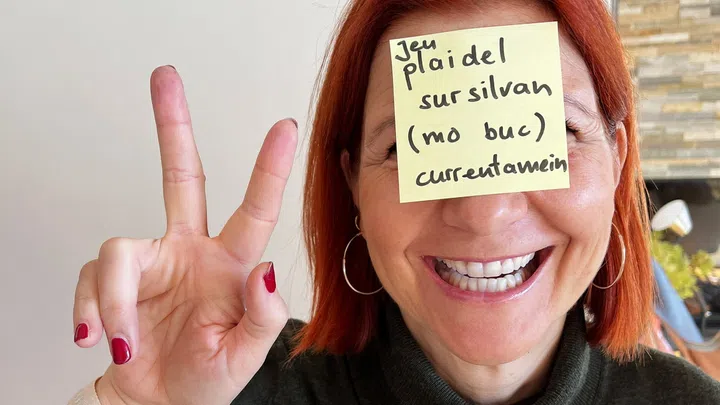 Jeu
plaidel
sur silvan
(mo buc)
currentamein